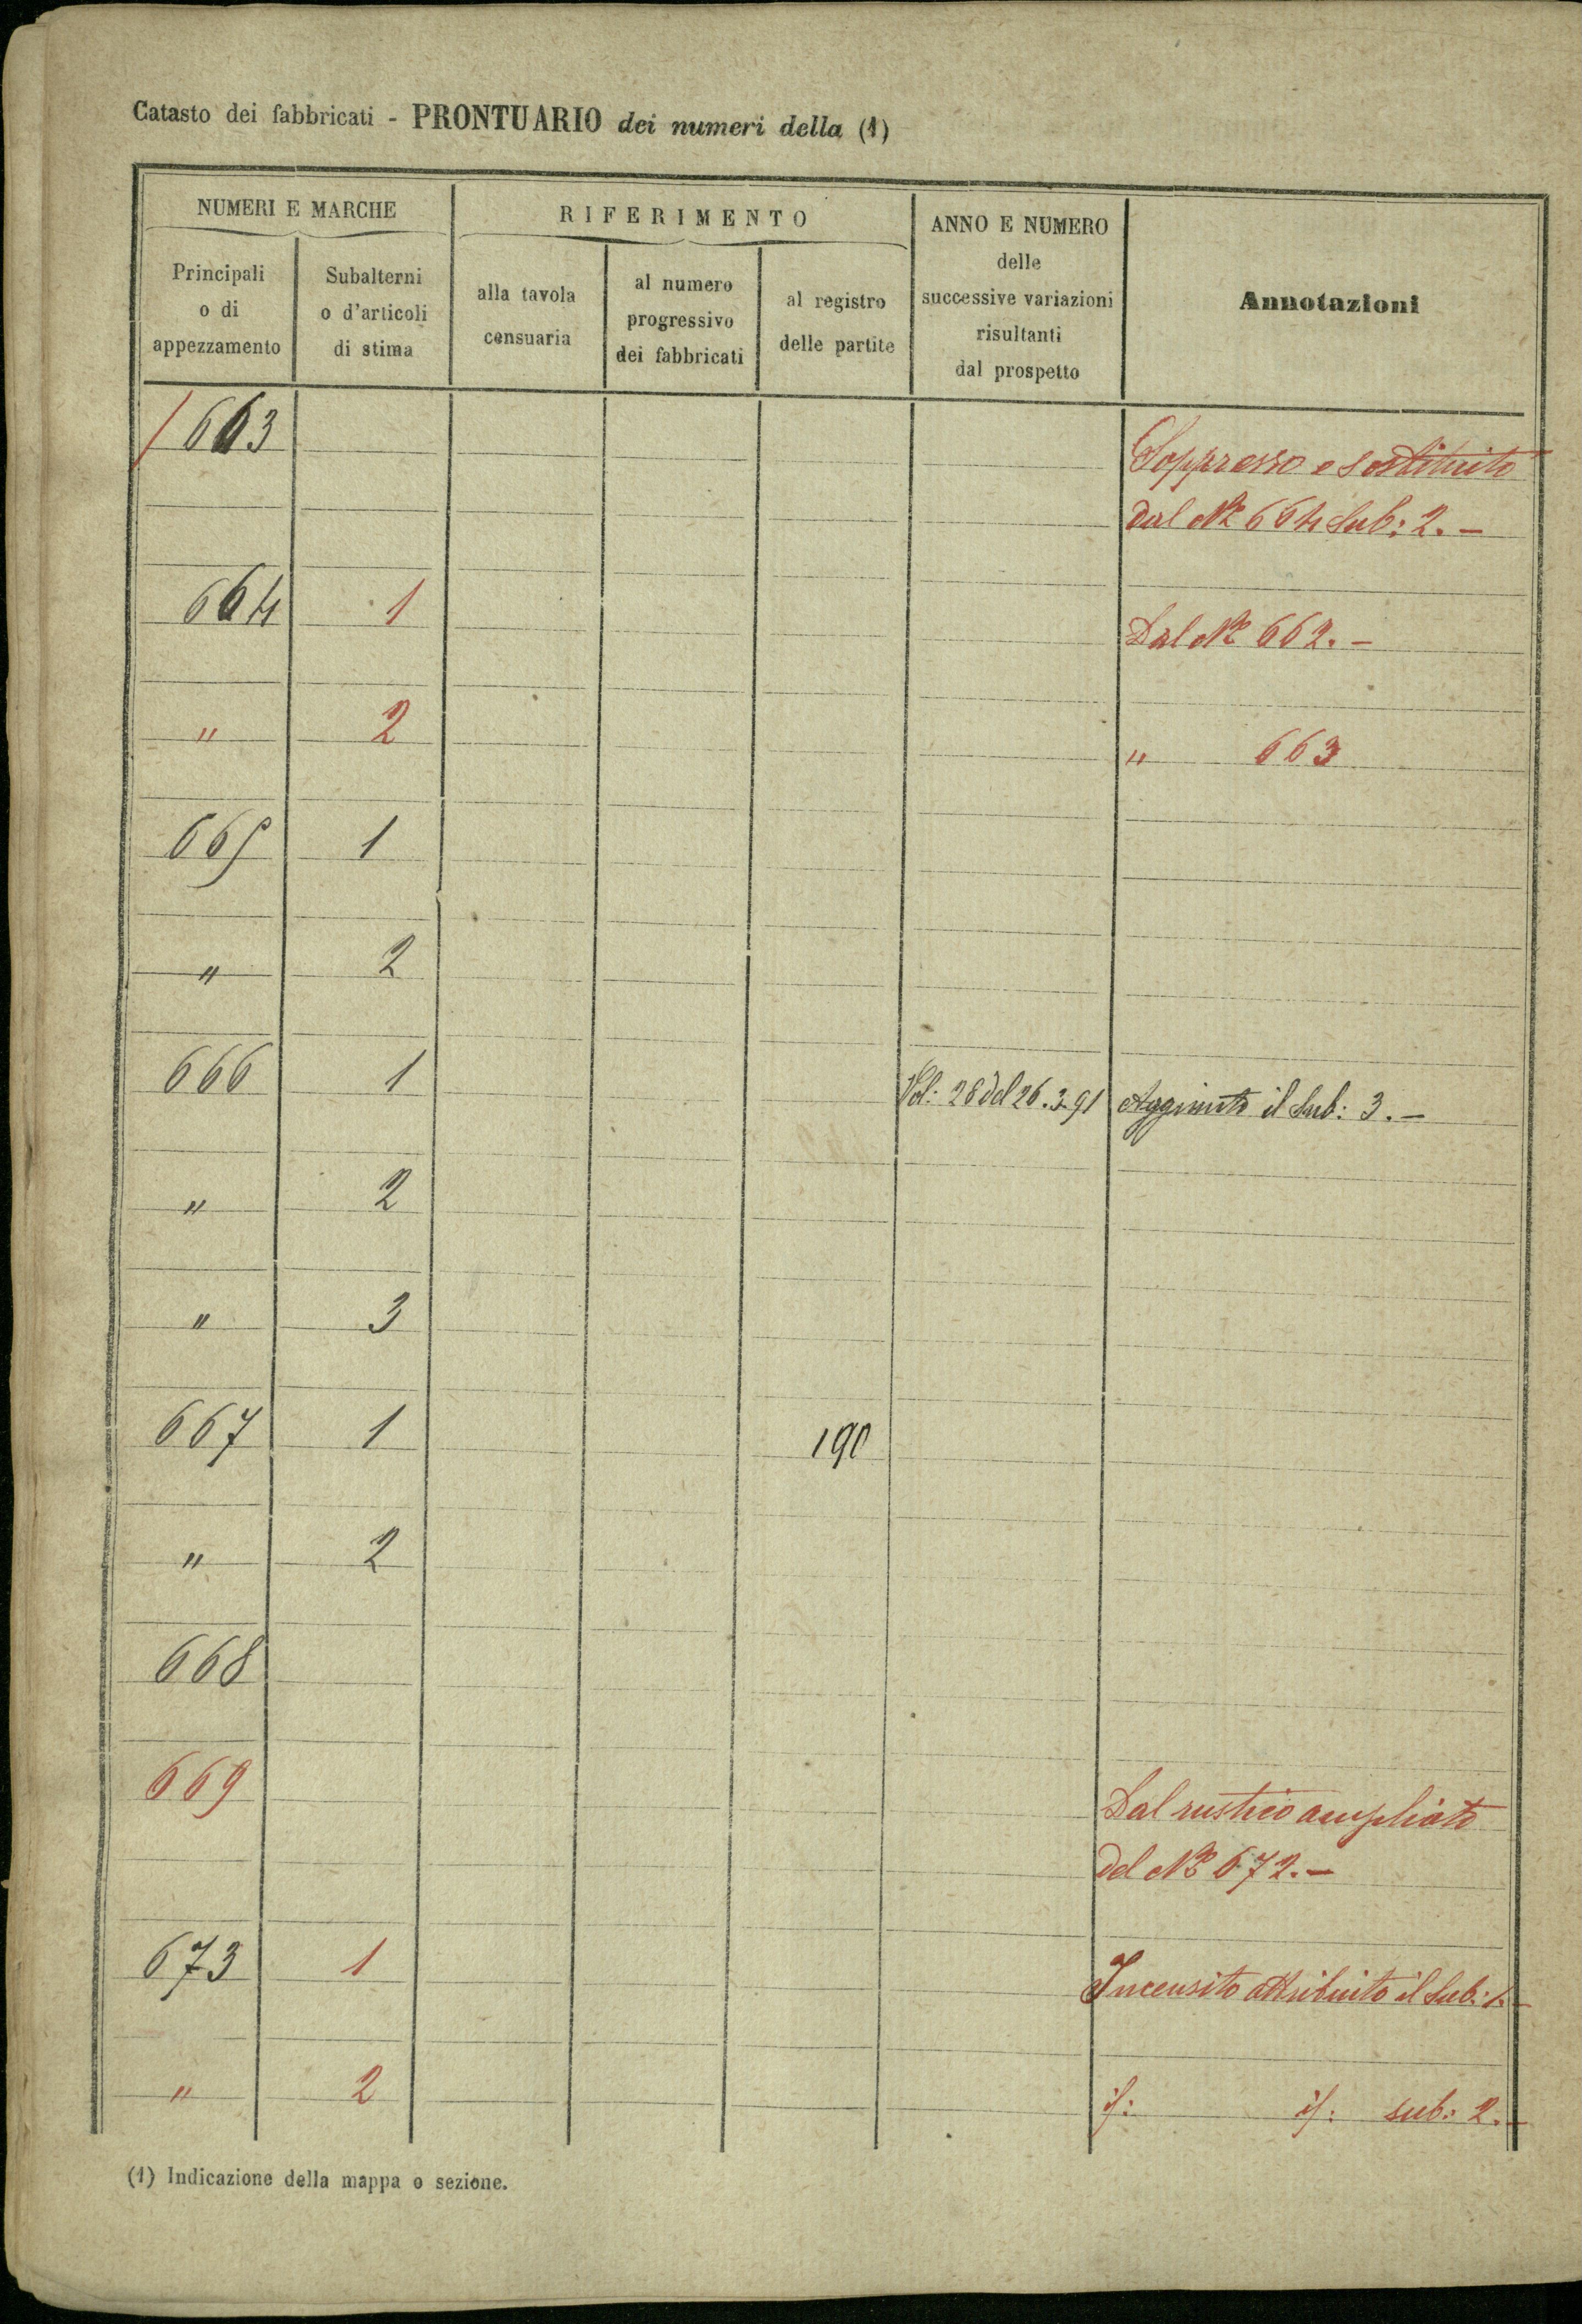 Catasto dei fabbricati - PRONTUARIO dei numeri della (1)
NUMERI E MARCHE
RIFERIMENTO
ANNO E NUMERO
delle
successive variazioni
risultanti
dal prospetto
Annotazioni
Principali
o di
appezzamento
Subalterni
o d'articoli
di stima
alla tavola
censuaria
al numero
progressivo
dei fabbricati
al registro
delle partite
663 Soppresso e sostituito
dal Nº 664 Sub: 2. -
664 1 Dal Nº 662. -
" 2 " 663
665 1
" 2
666 1 Vol: 28 del 26.3.91 Aggiunto il Sub: 3. -
" 2
" 3
667 1 190
" 2
668
669 Dal rustico ampliato
del Nº 672. -
673 1 Incensito attribuito il Sub: 1. -
" 2 id: id: sub: 2. -
(1) Indicazione della mappa o sezione.